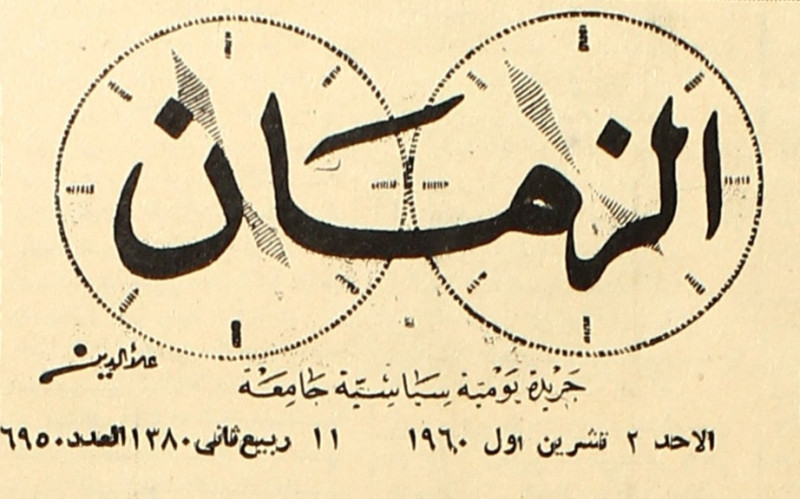 الزمان
علاء الدين
جريدة يومية سياسية جامعة
الاحد ٢ تشرين اول ١٩٦٠ ١١ ربيع ثاني ١٣٨٠ العدد ٦٩٥٠